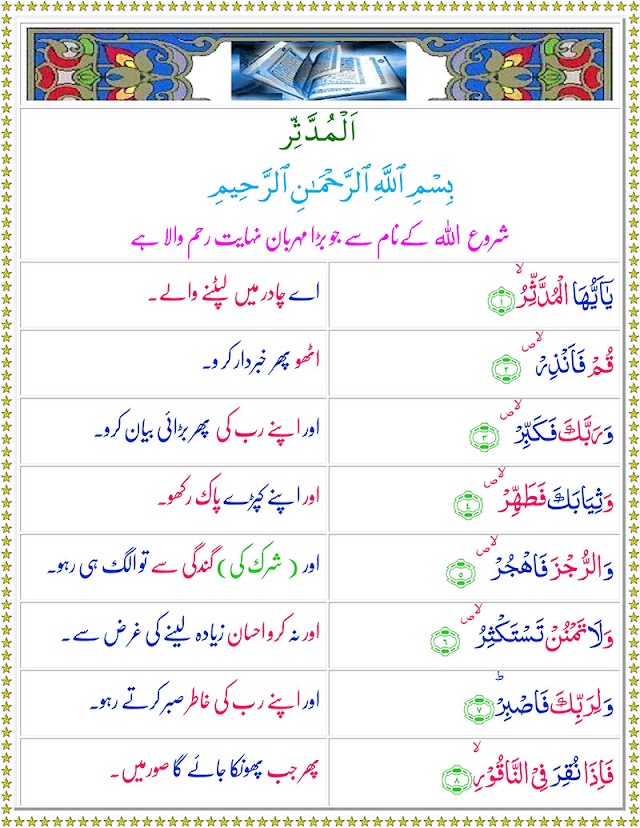 اَلْمُدَّثِّر
بِسْمِ ٱللَّهِ ٱلرَّحْمَـٰنِ ٱلرَّحِيمِ
شروع اللہ کے نام سے جو بڑا مہربان نہایت رحم والا ہے
يٰۤاَيُّهَا الْمُدَّثِّرُ ۙ‏ ﴿۱﴾ اے چادر میں لپٹنے والے۔
قُمْ فَاَنْذِرْ ۙ‏ ﴿۲﴾ اٹھو پھر خبردار کر و۔
وَرَبَّكَ فَكَبِّرْ ۙ‏ ﴿۳﴾ اور اپنے رب کی پھر بڑائی بیان کرو۔
وَثِيَابَكَ فَطَهِّرْ ۙ‏ ﴿۴﴾ اور اپنے کپڑے پاک رکھو۔
وَالرُّجْزَ فَاهْجُرْ ۙ‏ ﴿۵﴾ اور ( شرک کی) گندگی سے تو الگ ہی رہو۔
وَلَا تَمْنُنْ تَسْتَكْثِرُ ۙ‏ ﴿۶﴾ اور نہ کرو احسان زیادہ لینے کی غرض سے۔
وَ لِرَبِّكَ فَاصْبِرْ ؕ‏ ﴿۷﴾ اور اپنے رب کی خاطر صبر کرتے رہو۔
فَاِذَا نُقِرَ فِى النَّاقُوْرِ ۙ‏ ﴿۸﴾ پھر جب پھونکا جائے گا صور میں۔